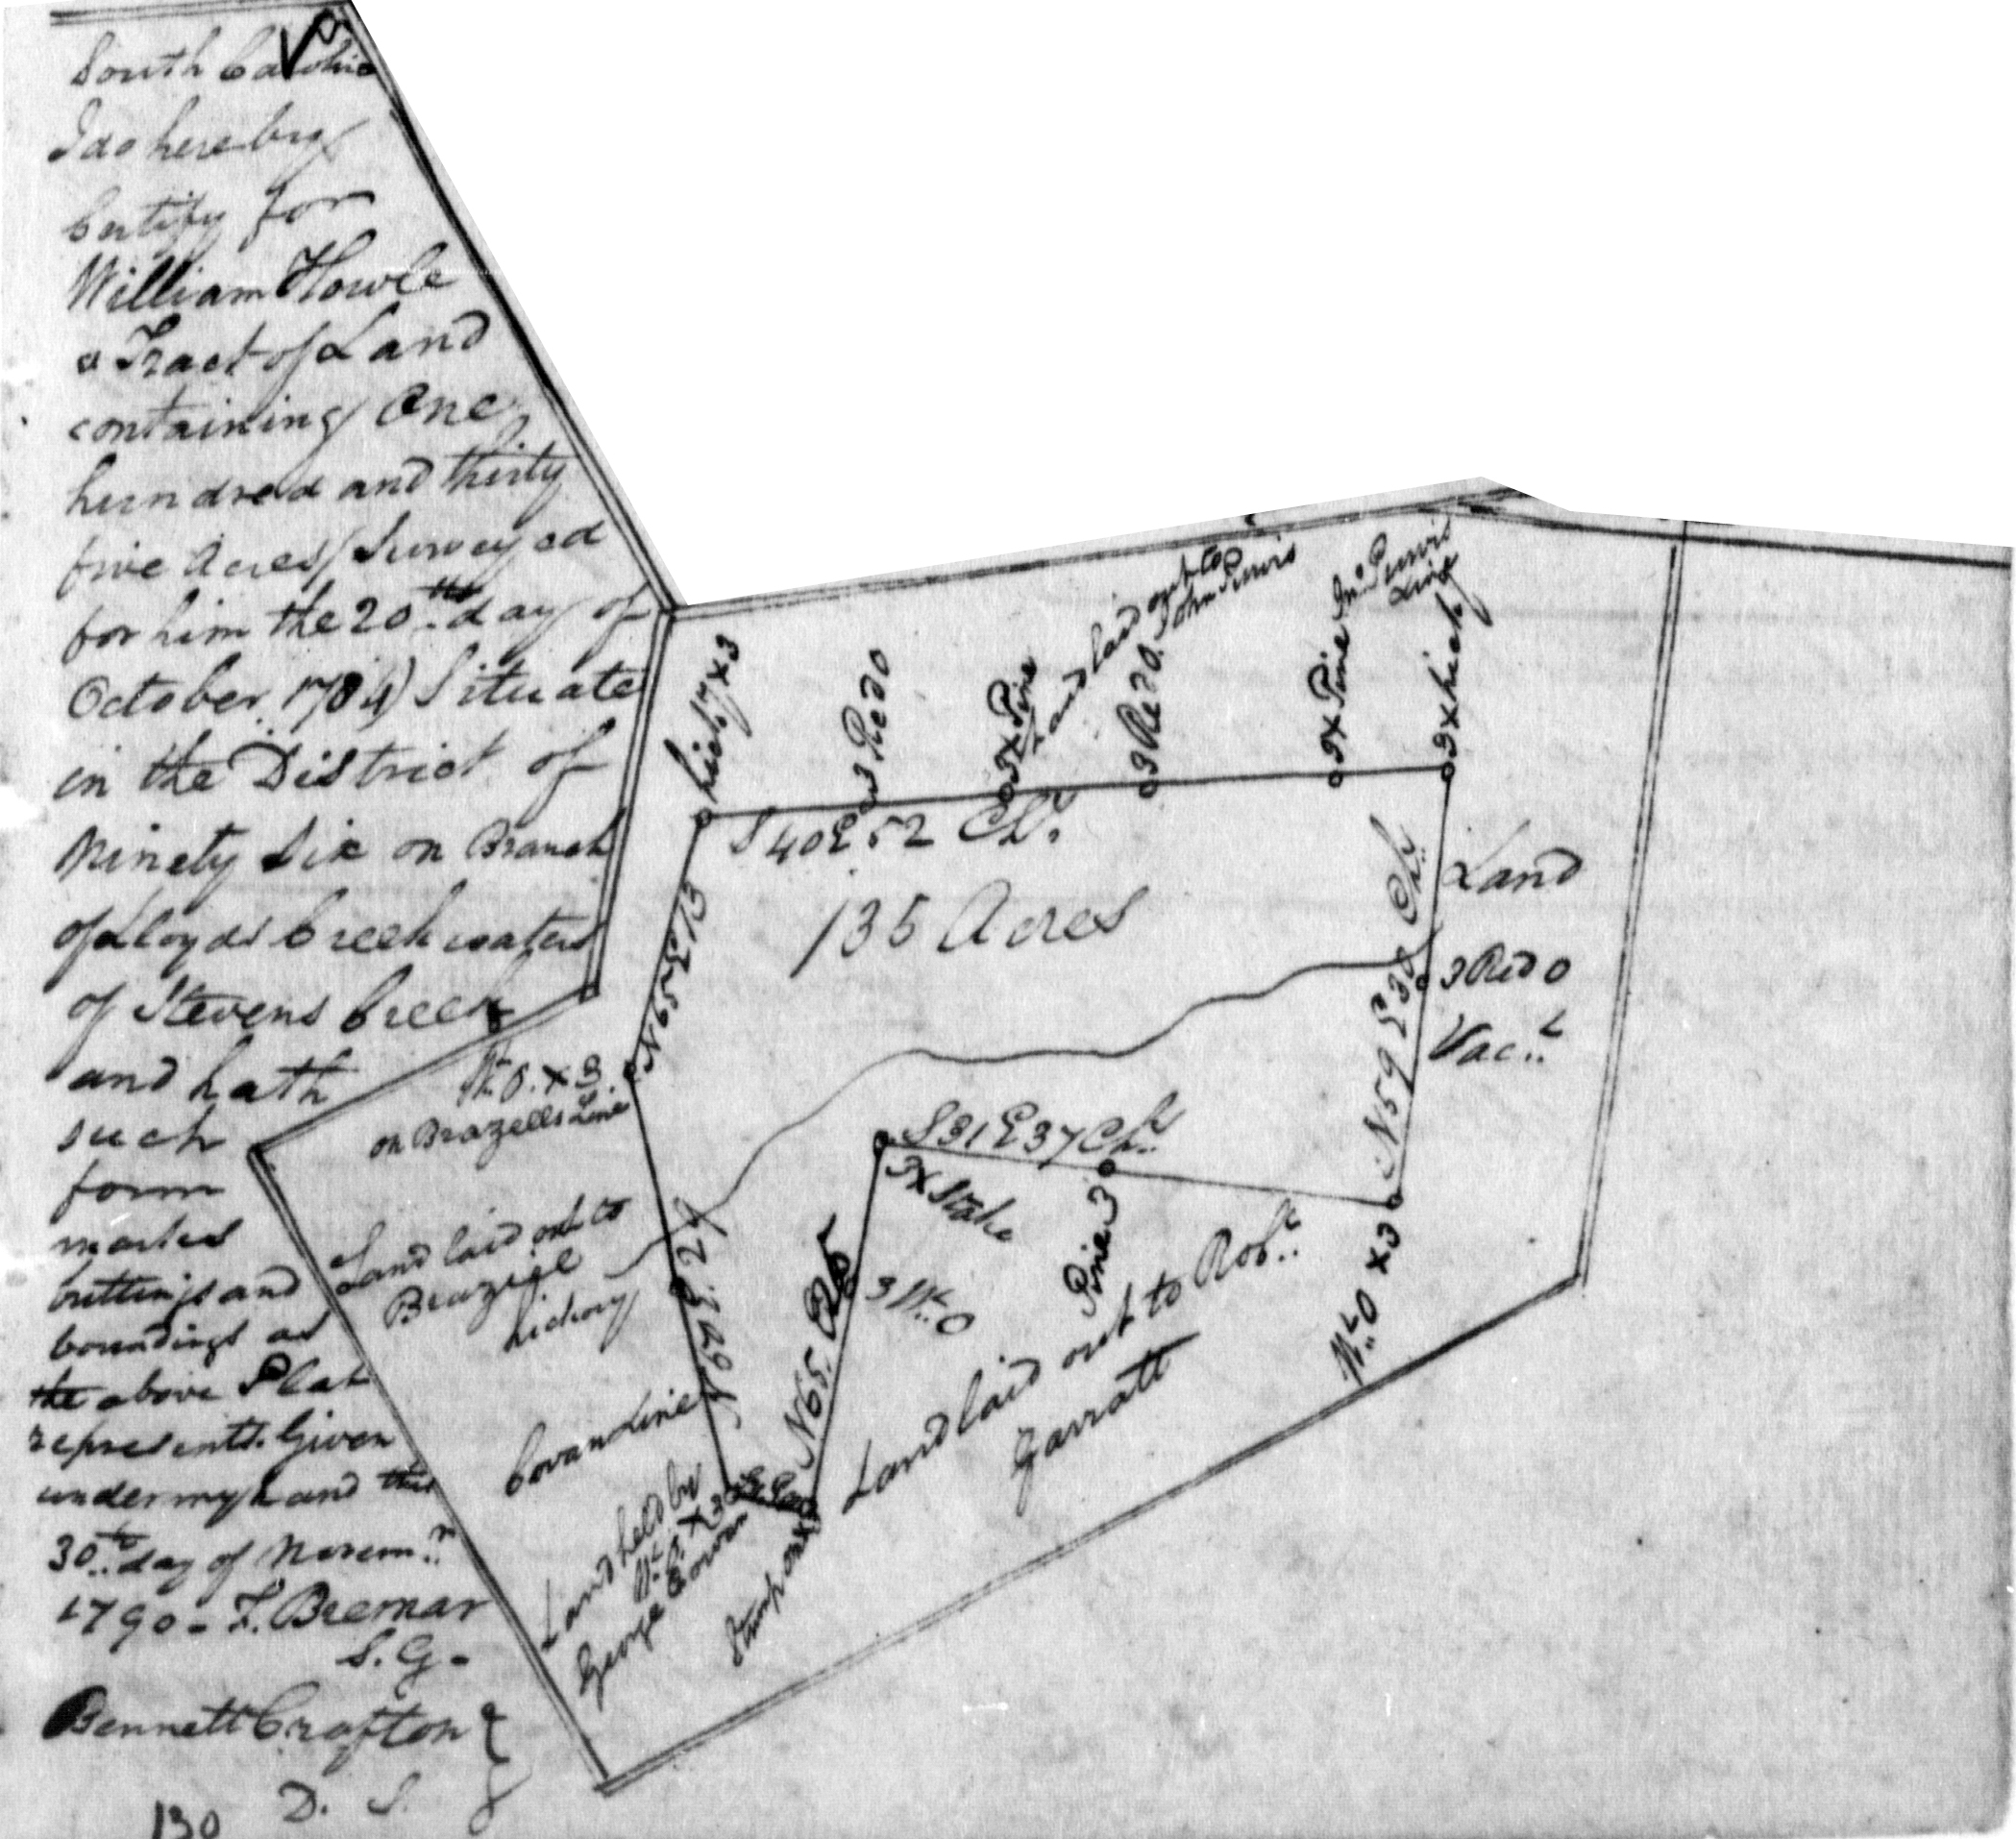 South Carolina
I do hereby
Certify for
William Howle
a Tract of Land
containing One
hundred and thirty
five Acres Surveyed
for him the 20th day of
October 1784) Situate
in the District of
Ninety Six on Branch
of Lloyds Creek waters
of Stevens Creek
and hath
such
form
marks
buttings and
boundings as
the above Plat
represents. Given
under my hand this
30th day of Novem.r
1790 - F. Bremar
S. G.
Bennett Crafton
D. S.
130
hick.y X 3
3 Red O
3 X Pine
Land laid out to
John Purvis
3 Red O.
3 X Pine Jn.o Purvis
Line
3 X hick.y
S 40 E 52 Ch.s
135 Acres
N 65 E 13
W.t O. X 3.
on Brazeels Line
Land laid out to
Brazeel
hickory
N 29 E. 24
Cowan Line
Land held by
W.t O. X 3
George Cowan
Stump
N 65. E 25
3 X Stake
S 31 E 37 Ch.s
Pine 3
3 W.t O
Land laid out to Rob.t
Garratt
W.t O X 3
N 59 E 32 Ch.
Land
3 Red O
Vac.t